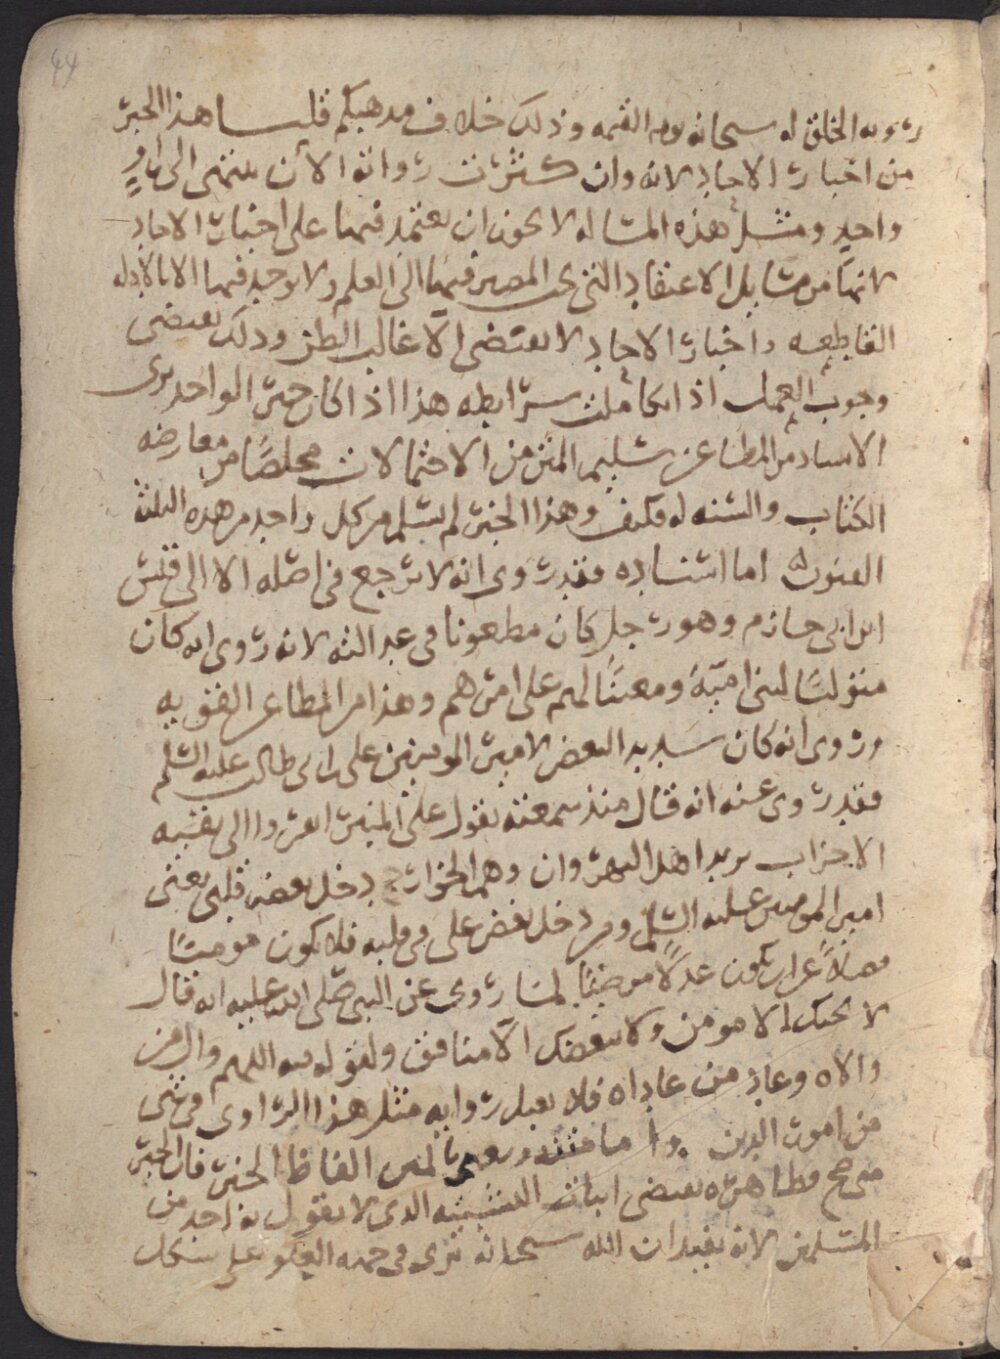 44
رويه الخلق له سبحانه يوم القيمه وذلك خلاف مذهبكم قلنا هذا الخبر
من اخبار الاحاد لانه وان كثرت رواته الان ينتهى الى راوٍ
واحدٍ ومثل هذه المساله لا يجوز ان يعتمد فيها على اخبار الاحاد
لانها من مسايل الاعتقاد التى يجب المصير فيها الى العلم ولا يوخذ فيها الا بالادله
القاطعه واخبار الاحاد لا تقتضى الا غالب الظن وذلك يقتضى
وجوب العمل اذا تكاملت شرايطه هذا اذا كان خبر الواحد برى
الاسناد من المطاعن سليم المتن من الاحتمالات مخلصًا من معارضه
الكتاب والسنه له فكيف وهذا الخبر لم يسلم من كل واحد من هذه الثلثه
الفنون اما اسناده فقد روى انه لا يرجع فى اصله الا الى قيس
ابن ابى حازم وهو رجل كان مطعونا فى عدالته لانه روى انه كان
متوليًا لبنى اميّة ومعينًا لهم على امرهم وهذا من المطاعن القويه
وروى انه كان شديد البغض لامير المومنين على بن ابى طالب عليه السلم
فقد روى عنه انه قال منذ سمعته يقول على المنبر انفروا الى بقيه
الاحزاب يريد اهل النهروان وهم الخوارج دخل بغضه قلبى يعنى
امير المومنين عليه السلم ومن دخل بغض على فى قلبه فلا يكون مومنًا
فضلاً عن ان يكون عدلاً مرضيًا لما روى عن النبى صلى الله عليه انه قال
لا يحبك الا مومن ولا يبغضك الا منافق ولقوله فيه اللهم وال من
والاه وعاد من عاداه فلا يقبل روايه مثل هذا الراوى فى شى
من امور الدين واما متنه الفاظ الخبر فان الخبر
متى صح فظاهره يقتضى اثبات التشبيه الذى لا يقول به احد من
المسلمين لانه يفيد ان الله سبحانه يرى فى جهه العلو على شكل